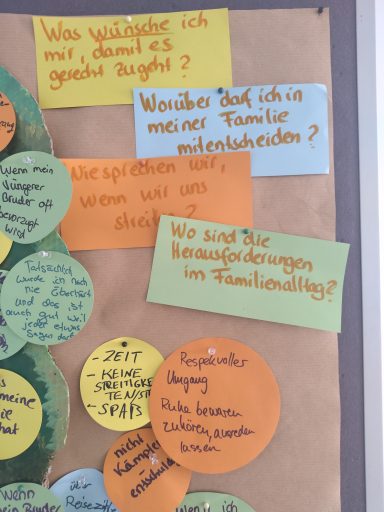 Was wünsche ich
mir, damit es
gerecht zugeht?
Worüber darf ich in
meiner Familie
mitentscheiden?
Wie sprechen wir,
wenn wir uns
streiten?
Wo sind die
Herausforderungen
im Familienalltag?
Wenn mein
jüngerer
Bruder oft
bevorzugt
wird
Tatsächlich
wurde ich noch
nie überhört
und das ist
auch gut weil
jeder etwas
sagen darf
- ZEIT
- KEINE
STREITIGKEI
TEN/ST
- SPAß
Respektvoller
Umgang
Ruhe bewaren
zuhören, ausreden
lassen
nicht
Kämpfen
entschuld
meine
hat
Wenn
Bruder
Reisezi
Wenn ich